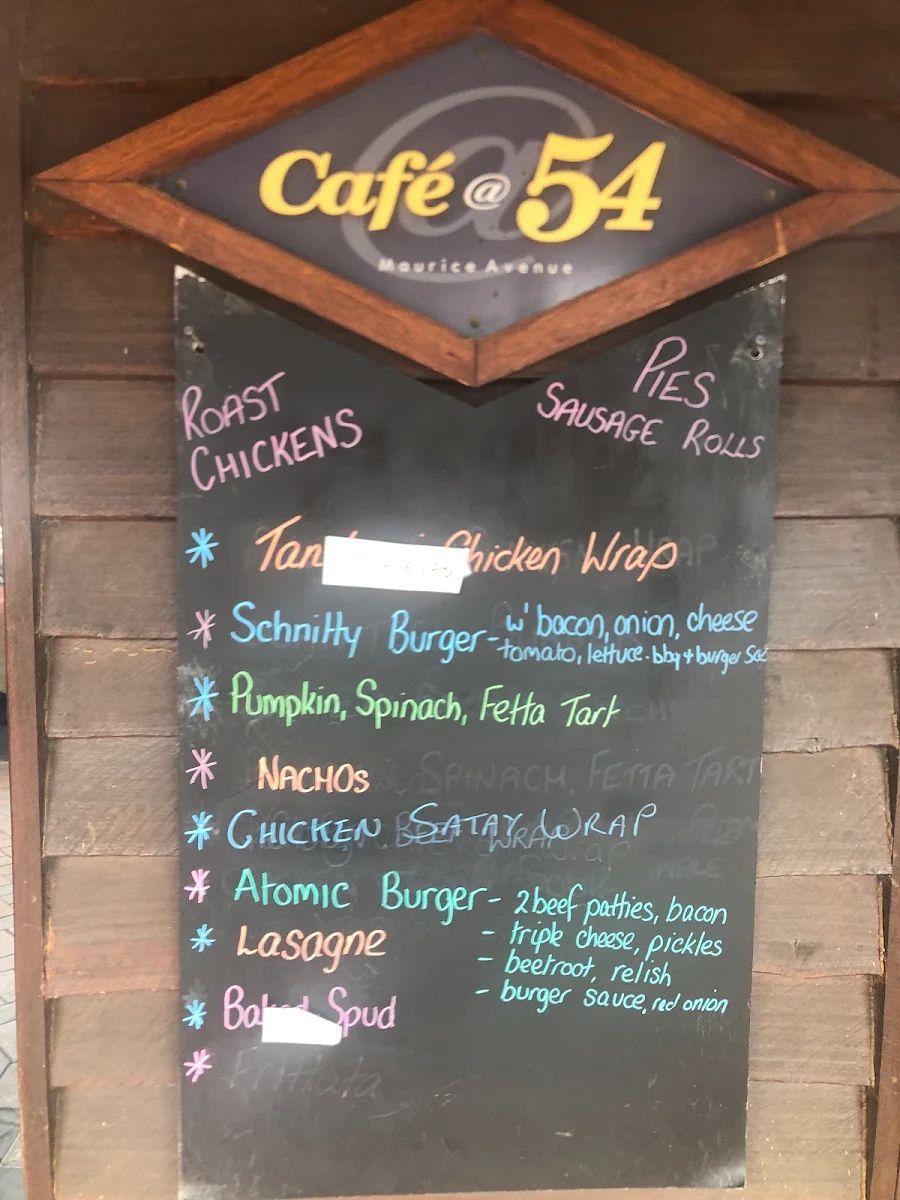 Café @ 54
Maurice Avenue
ROAST
CHICKENS
PIES
SAUSAGE ROLLS
* Chicken Wrap
* Schnitty Burger - w' bacon, onion, cheese
tomato, lettuce. bbq + burger
* Pumpkin, Spinach, Fetta Tart
* NACHOS
SPINACH, FETTA TART
* CHICKEN SATAY WRAP
* Atomic Burger - 2 beef patties, bacon
- triple cheese, pickles
* Lasagne
- beetroot, relish
- burger sauce, red onion
* Spud
*